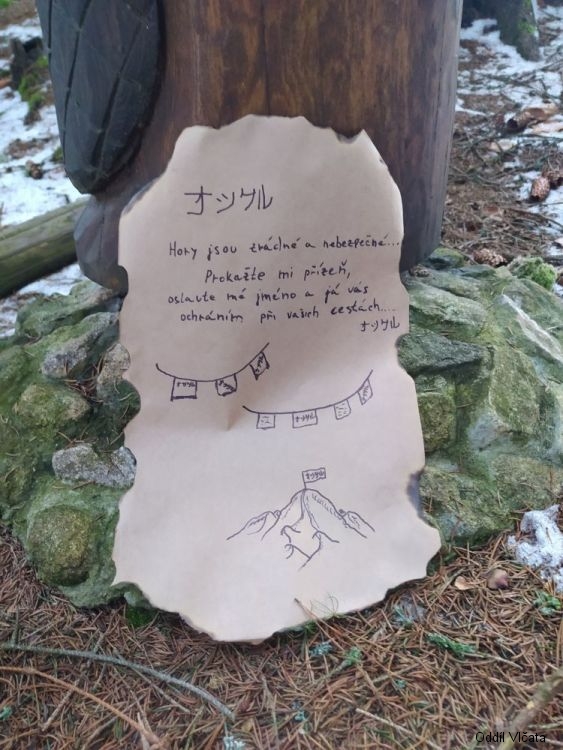 オツケル
Hory jsou zrádné a nebezpečné...
Prokažte mi přízeň,
oslavte mé jméno a já vás
ochráním při vašich cestách...
オツケル
オツケル
オツケル
オツケル
Oddíl Vlčata